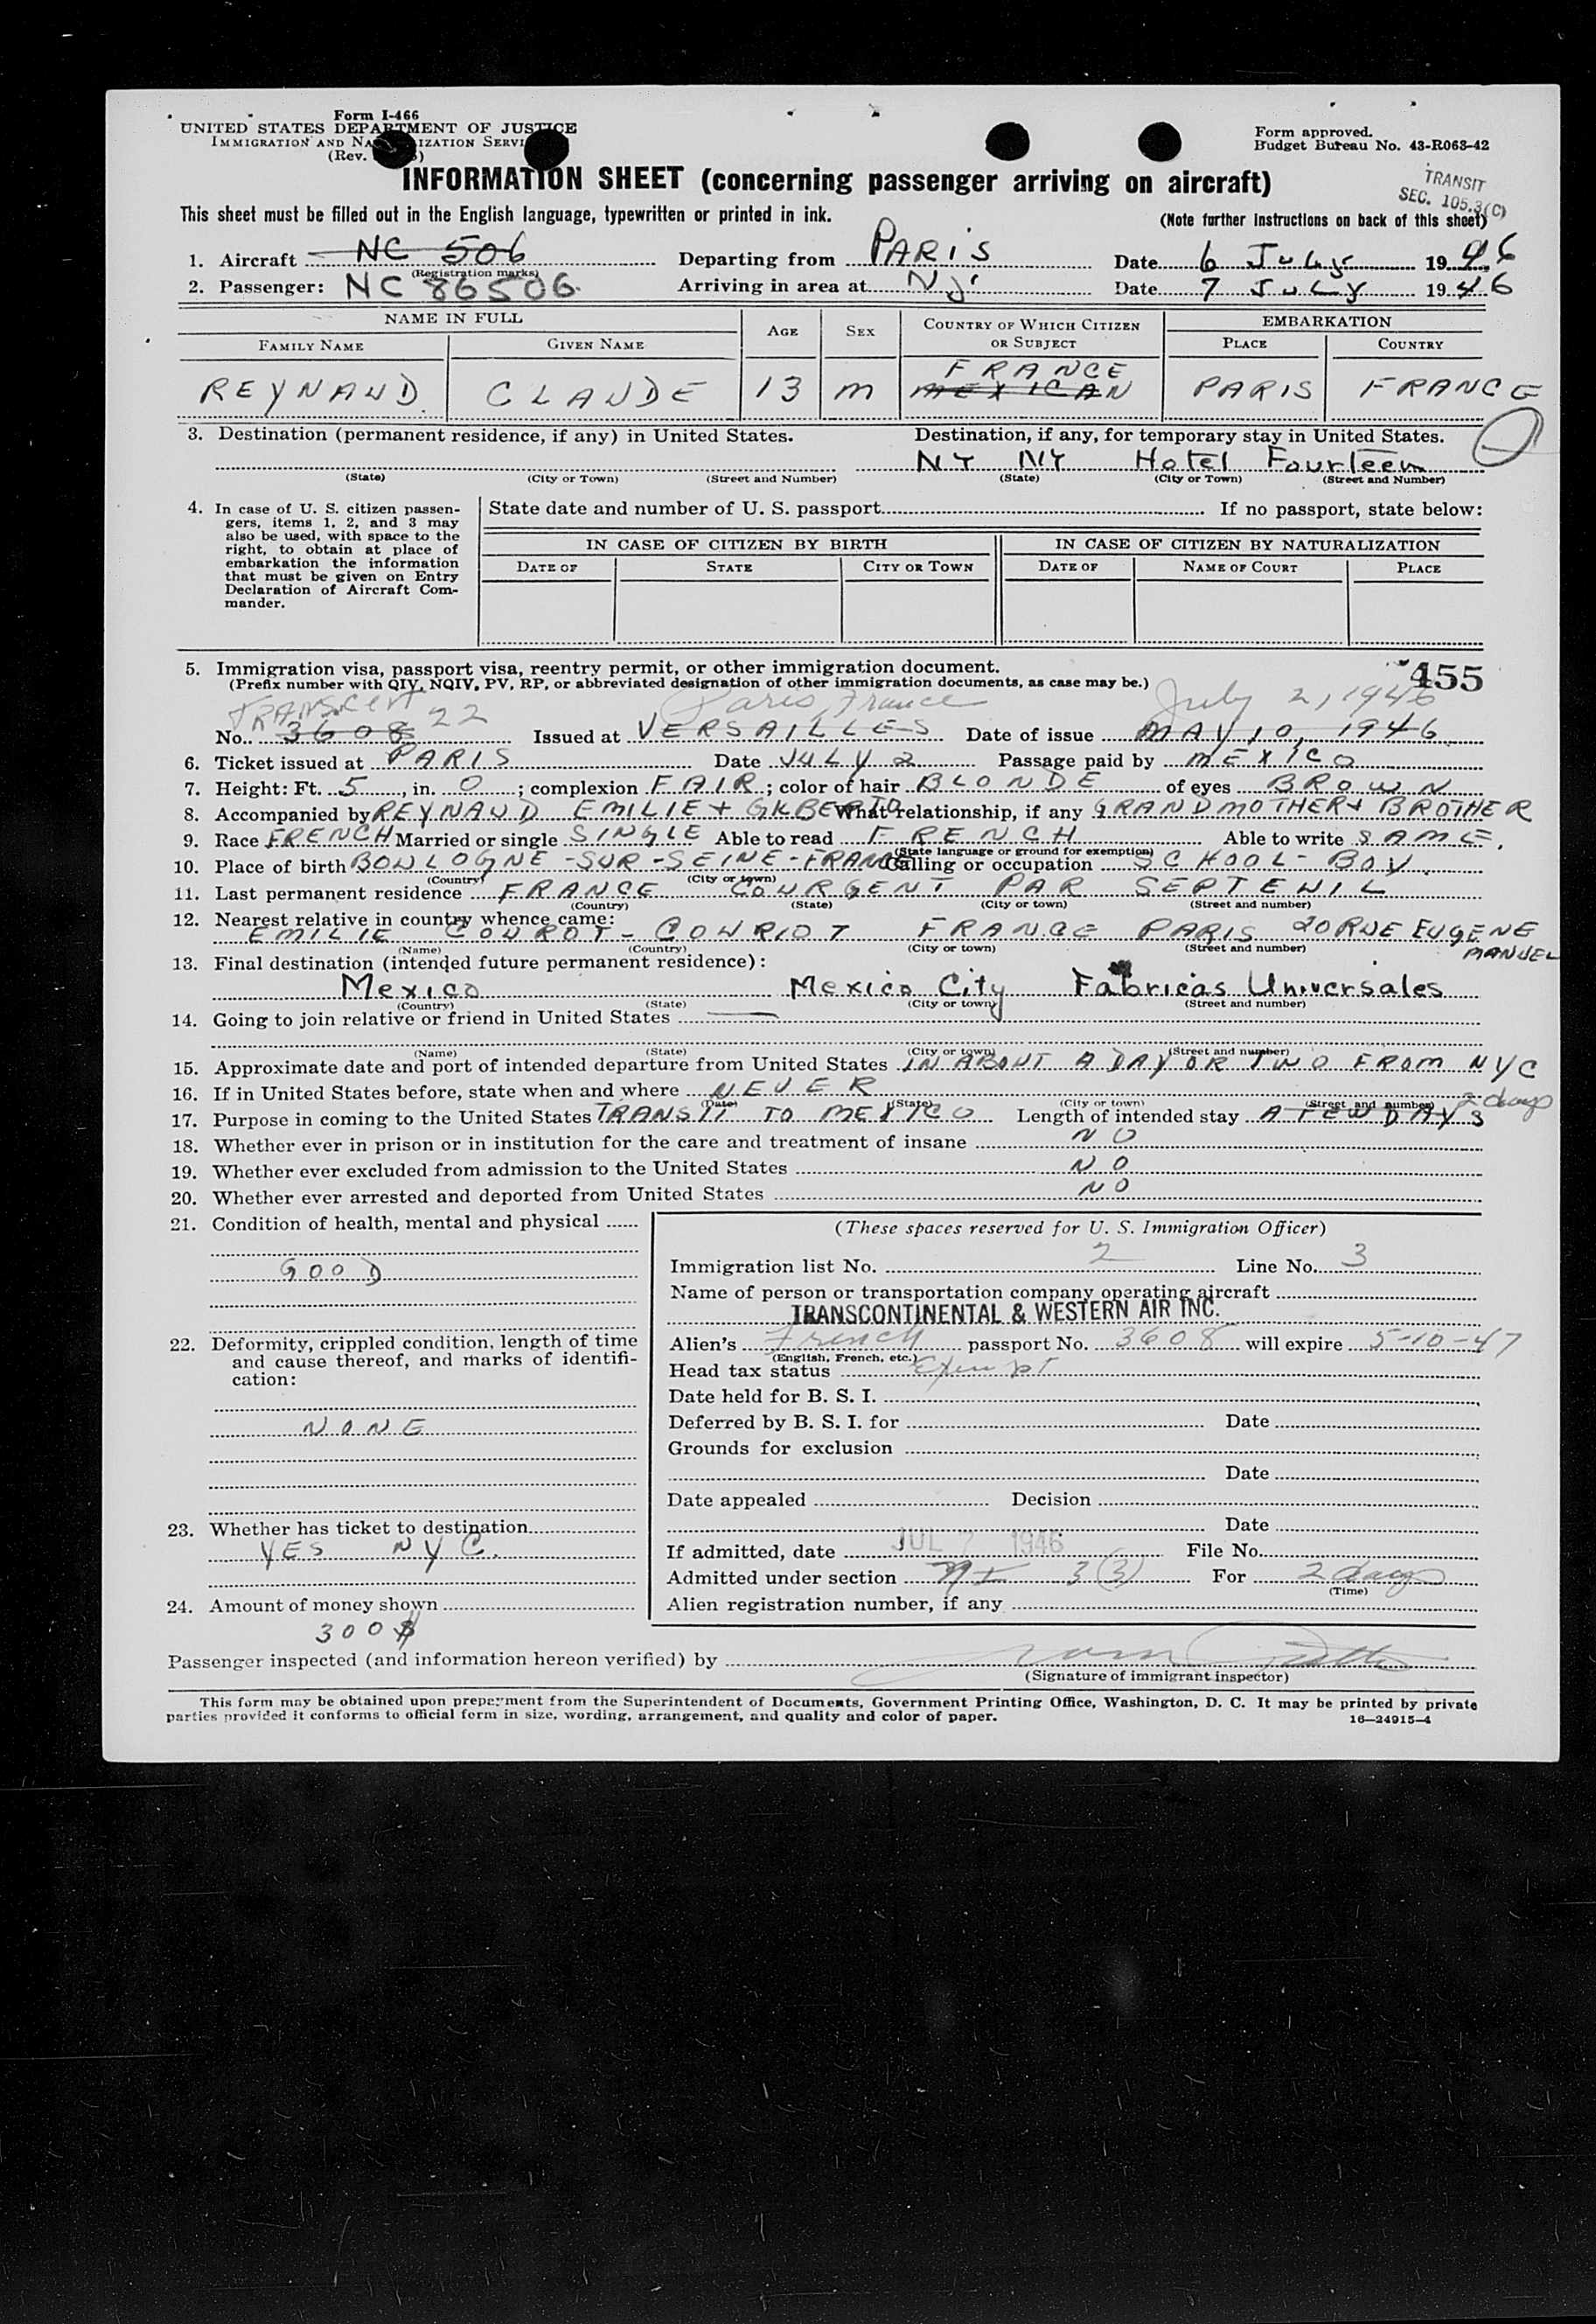 Form I-466
UNITED STATES DEPARTMENT OF JUSTICE
IMMIGRATION AND NATURALIZATION SERVICE
(Rev.
Form approved.
Budget Bureau No. 43-R063-42
INFORMATION SHEET (concerning passenger arriving on aircraft)
TRANSIT
SEC. 105.3(C)
This sheet must be filled out in the English language, typewritten or printed in ink.
(Note further instructions on back of this sheet)
1. Aircraft NC 506 Departing from PARIS Date 6 July 1946
(Registration marks)
2. Passenger: NC 86506 Arriving in area at NY Date 7 July 1946
NAME IN FULL AGE SEX COUNTRY OF WHICH CITIZEN OR SUBJECT EMBARKATION
FAMILY NAME GIVEN NAME PLACE COUNTRY
FRANCE
REYNAUD CLAUDE 13 M MEXICAN PARIS FRANCE
3. Destination (permanent residence, if any) in United States. Destination, if any, for temporary stay in United States.
NY NY Hotel Fourteen
(State) (City or Town) (Street and Number) (State) (City or Town) (Street and Number)
4. In case of U. S. citizen passengers, items 1, 2, and 3 may also be used, with space to the right, to obtain at place of embarkation the information that must be given on Entry Declaration of Aircraft Commander.
State date and number of U. S. passport If no passport, state below:
IN CASE OF CITIZEN BY BIRTH IN CASE OF CITIZEN BY NATURALIZATION
DATE OF STATE CITY OR TOWN DATE OF NAME OF COURT PLACE
5. Immigration visa, passport visa, reentry permit, or other immigration document.
455
(Prefix number with QIV, NQIV, PV, RP, or abbreviated designation of other immigration documents, as case may be.)
22 Paris, France July 2, 1946
No. 3608 Issued at VERSAILLES Date of issue MAY 10, 1946
6. Ticket issued at PARIS Date JULY 2 Passage paid by MEXICO
7. Height: Ft. 5, in. 0; complexion FAIR; color of hair BLONDE of eyes BROWN
8. Accompanied by REYNAUD EMILIE + What relationship, if any GRANDMOTHER + BROTHER
9. Race FRENCH Married or single SINGLE Able to read FRENCH Able to write SAME.
(State language or ground for exemption)
10. Place of birth BOULOGNE-SUR-SEINE-FRANCE Calling or occupation SCHOOL-BOY
(Country) (City or town)
11. Last permanent residence FRANCE COURGENT PAR SEPTEUIL
(Country) (State) (City or town) (Street and number)
12. Nearest relative in country whence came:
EMILIE COUROT-COURIOT FRANCE PARIS 20 RUE EUGENE MANUEL
(Name) (Country) (City or town) (Street and number)
13. Final destination (intended future permanent residence):
Mexico Mexico City Fabricas Universales
(Country) (State) (City or town) (Street and number)
14. Going to join relative or friend in United States —
(Name) (State) (City or town) (Street and number)
15. Approximate date and port of intended departure from United States IN ABOUT A DAY OR TWO FROM NYC
16. If in United States before, state when and where NEVER
(Date) (State) (City or town) (Street and number)
2 days
17. Purpose in coming to the United States TRANSIT TO MEXICO Length of intended stay A FEW DAYS
18. Whether ever in prison or in institution for the care and treatment of insane NO
19. Whether ever excluded from admission to the United States NO
20. Whether ever arrested and deported from United States NO
21. Condition of health, mental and physical
GOOD
22. Deformity, crippled condition, length of time and cause thereof, and marks of identification:
NONE
23. Whether has ticket to destination
YES NYC.
24. Amount of money shown
300$
(These spaces reserved for U. S. Immigration Officer)
Immigration list No. 2 Line No. 3
Name of person or transportation company operating aircraft
TRANSCONTINENTAL & WESTERN AIR INC.
Alien's French passport No. 3608 will expire 5-10-47
(English, French, etc.)
Head tax status Exempt
Date held for B. S. I.
Deferred by B. S. I. for Date
Grounds for exclusion
Date
Date appealed Decision
Date
If admitted, date JUL 7 1946 File No.
Admitted under section 3(3) For 2 days
(Time)
Alien registration number, if any
Passenger inspected (and information hereon verified) by
(Signature of immigrant inspector)
This form may be obtained upon prepayment from the Superintendent of Documents, Government Printing Office, Washington, D. C. It may be printed by private
parties provided it conforms to official form in size, wording, arrangement, and quality and color of paper.
16—24915-4